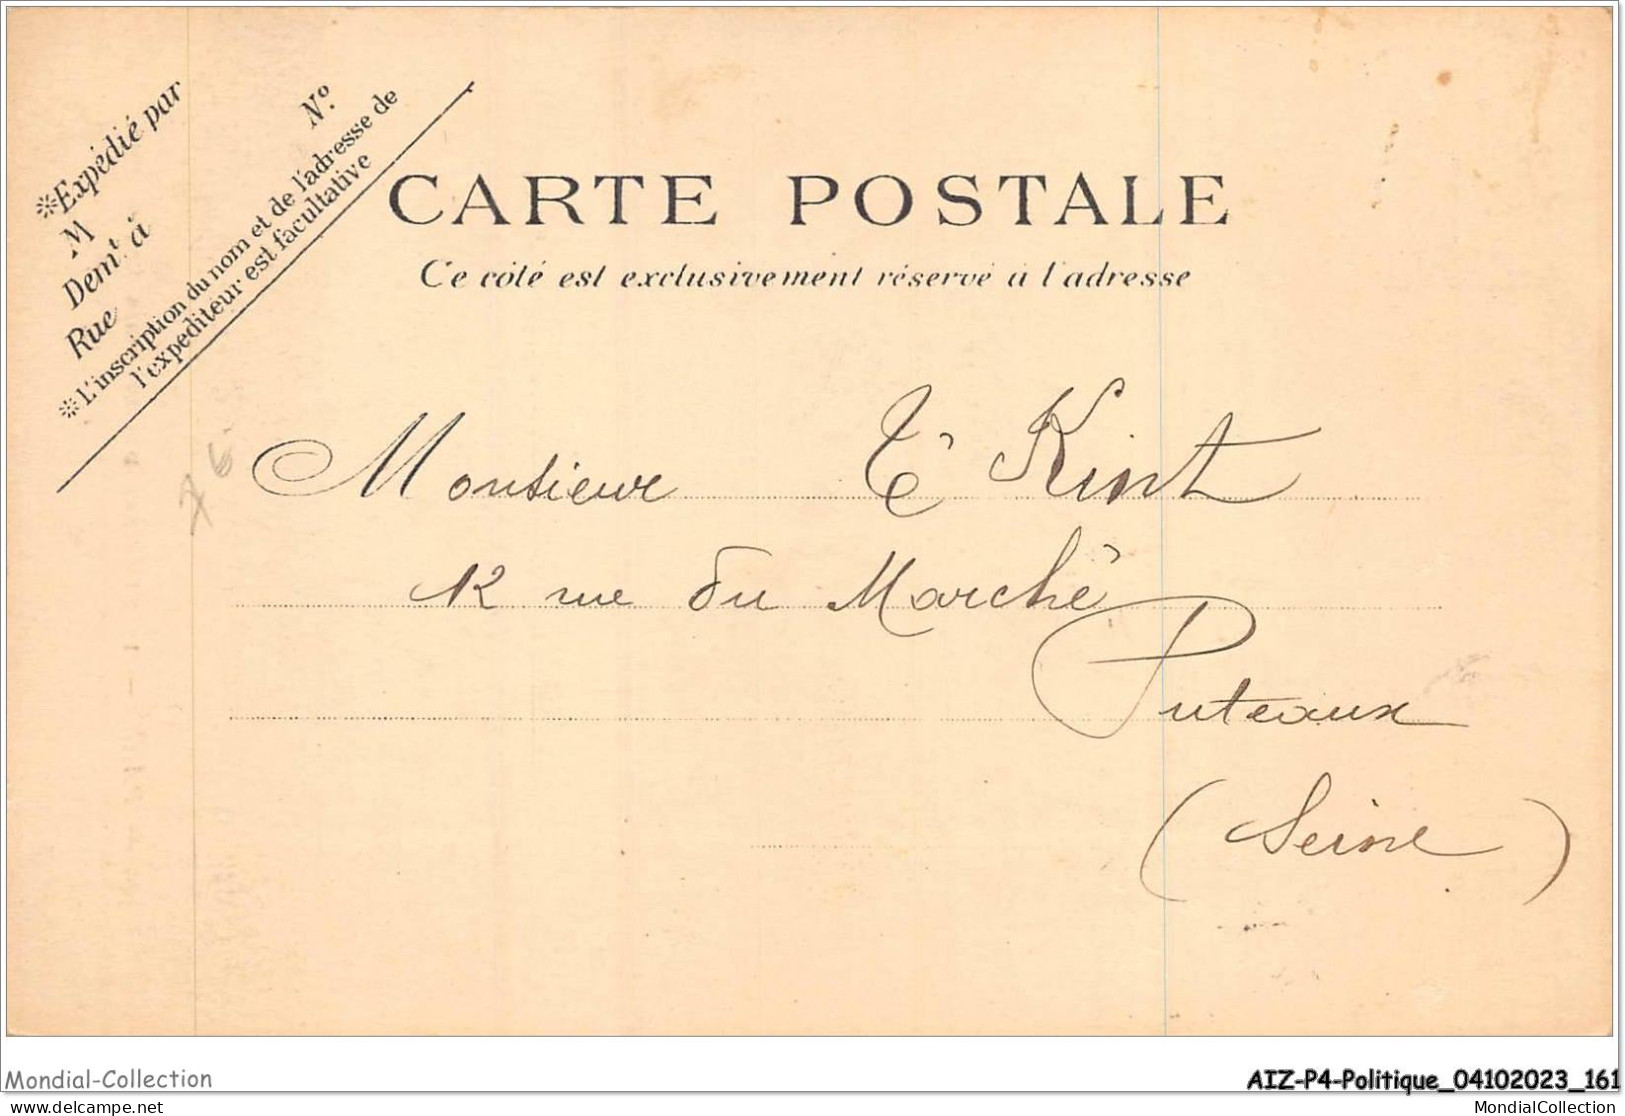 ※Expédié par
M
Demt. à
Rue
No.
※L'inscription du nom et de l'adresse de
l'expéditeur est facultative
CARTE POSTALE
Ce côté est exclusivement réservé à l'adresse
Monsieur T' Kint
12 rue du Marché
Puteaux
(Seine)
Mondial-Collection
AIZ-P4-Politique_04102023_161
delcampe.net
MondialCollection